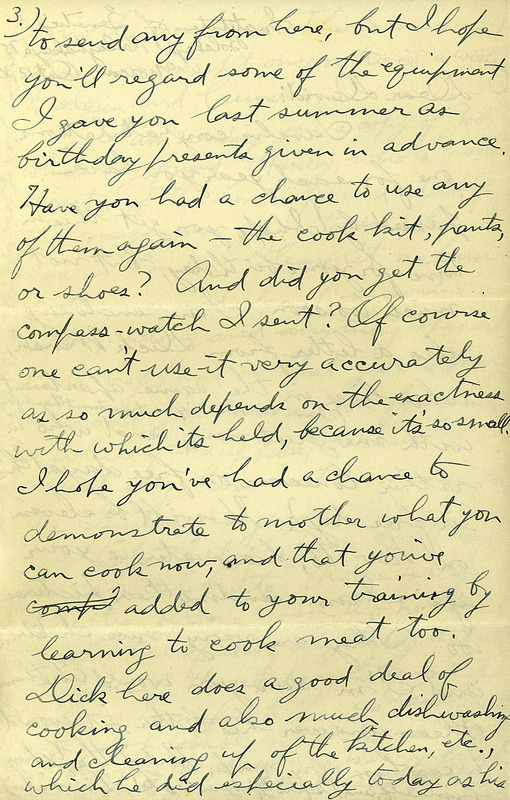 3.)
to send any from here, but I hope
you'll regard some of the equipment
I gave you last summer as
birthday presents given in advance.
Have you had a chance to use any
of them again – the cook kit, pants,
or shoes? And did you get the
compass-watch I sent? Of course
one can't use it very accurately
as so much depends on the exactness
with which its held, because it's so small.
I hope you've had a chance to
demonstrate to mother what you
can cook now, and that you've
comp' added to your training by
learning to cook meat too.
Dick here does a good deal of
cooking and also much dishwashing
and cleaning up of the kitchen, etc.,
which he did especially today as his